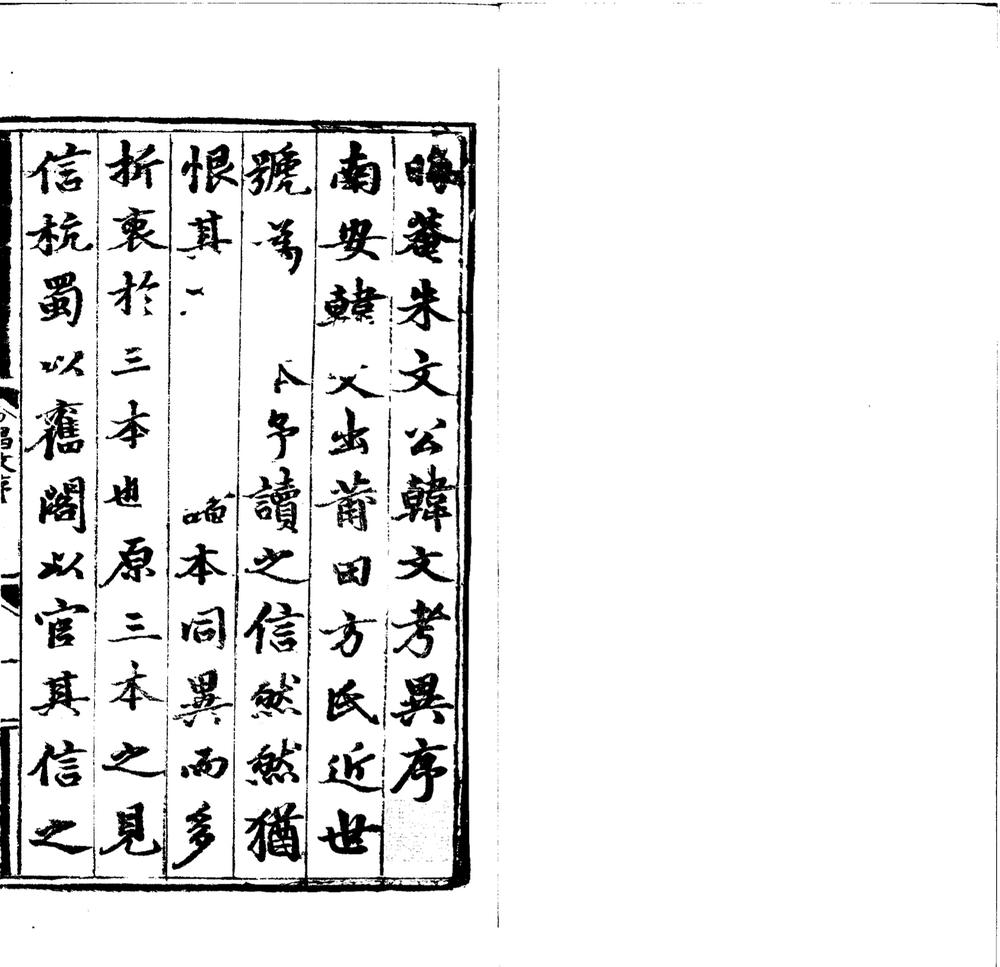 晦菴朱文公韓文考異序
南安韓文出莆田方氏近世
號為本予讀之信然然猶
恨其本同異而多
折衷於三本也原三本之見
信杭蜀以舊閣以官其信之
昌文序
一